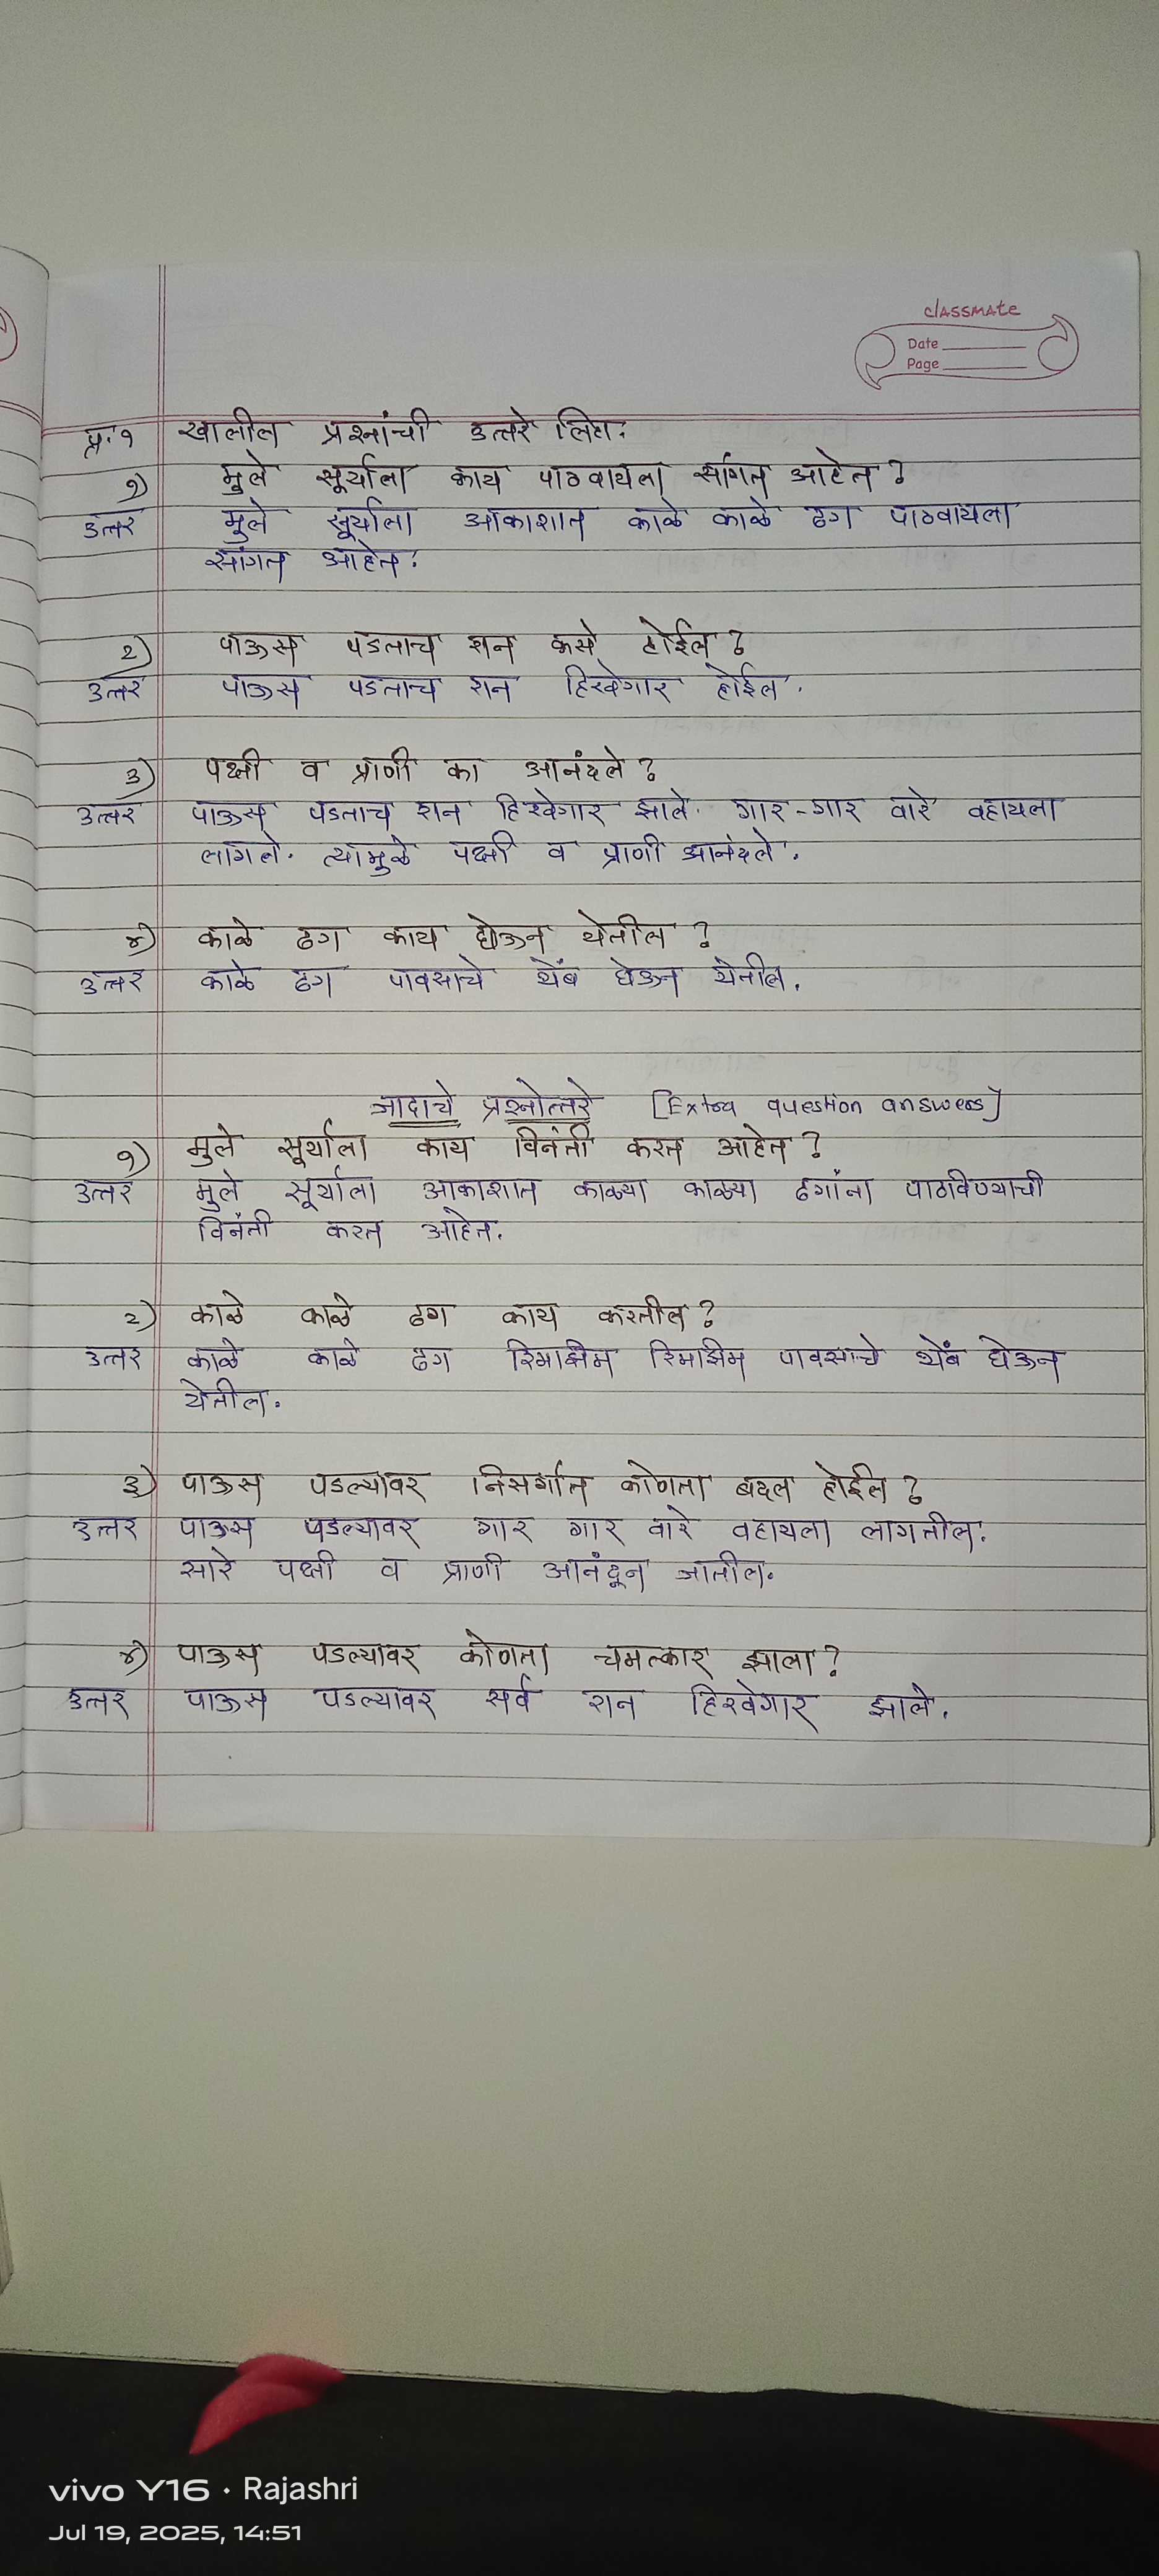 classmate
Date
Page
प्र.१ खालील प्रश्नांची उत्तरे लिहा.
१) मुले सूर्याला काय पाठवायला सांगत आहेत ?
उत्तर मुले सूर्याला आकाशात काळे काळे ढग पाठवायला
सांगत आहेत.
२) पाऊस पडताच रान कसे होईल ?
उत्तर पाऊस पडताच रान हिरवेगार होईल.
३) पक्षी व प्राणी का आनंदले ?
उत्तर पाऊस पडताच रान हिरवेगार झाले. गार-गार वारे वहायला
लागले. त्यामुळे पक्षी व प्राणी आनंदले.
४) काळे ढग काय घेऊन येतील ?
उत्तर काळे ढग पावसाचे थेंब घेऊन येतील.
जादाचे प्रश्नोत्तरे [Extra question answers]
१) मुले सूर्याला काय विनंती करत आहेत ?
उत्तर मुले सूर्याला आकाशात काळ्या काळ्या ढगांना पाठविण्याची
विनंती करत आहेत.
२) काळे काळे ढग काय करतील ?
उत्तर काळे काळे ढग रिमझिम रिमझिम पावसाचे थेंब घेऊन
येतील.
३) पाऊस पडल्यावर निसर्गात कोणता बदल होईल ?
उत्तर पाऊस पडल्यावर गार गार वारे वहायला लागतील.
सारे पक्षी व प्राणी आनंदून जातील.
४) पाऊस पडल्यावर कोणता चमत्कार झाला ?
उत्तर पाऊस पडल्यावर सर्व रान हिरवेगार झाले.
vivo Y16 · Rajashri
Jul 19, 2025, 14:51